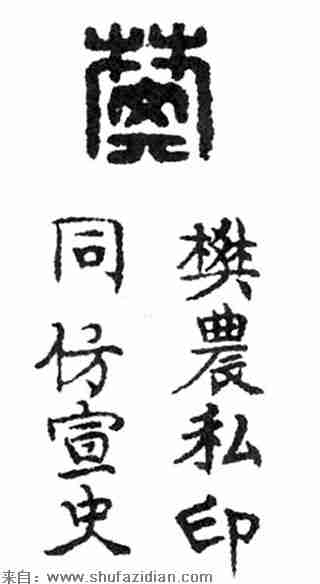 樊農私印
同仿宣史
来自：www.shufazidian.com